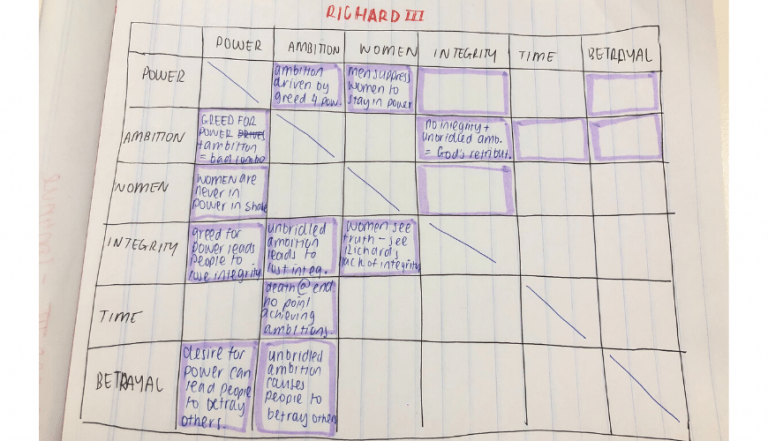 RICHARD III
POWER AMBITION WOMEN INTEGRITY TIME BETRAYAL
POWER
ambition
driven by
greed 4 pow.
men suppress
women to
stay in power
AMBITION
GREED FOR
POWER
+ambition
= bad combo
no integrity +
unbridled amb.
= God's retribut.
WOMEN
women are
never in
power in Shake
INTEGRITY
greed for
power leads
people to
lose integrity
unbridled
ambition
leads to
lost integ.
women see
truth - see
Richard's
lack of integrity
TIME
death @ end
no point
achieving
ambitions.
BETRAYAL
desire for
power can
lead people
to betray
others.
unbridled
ambition
causes
people to
betray others